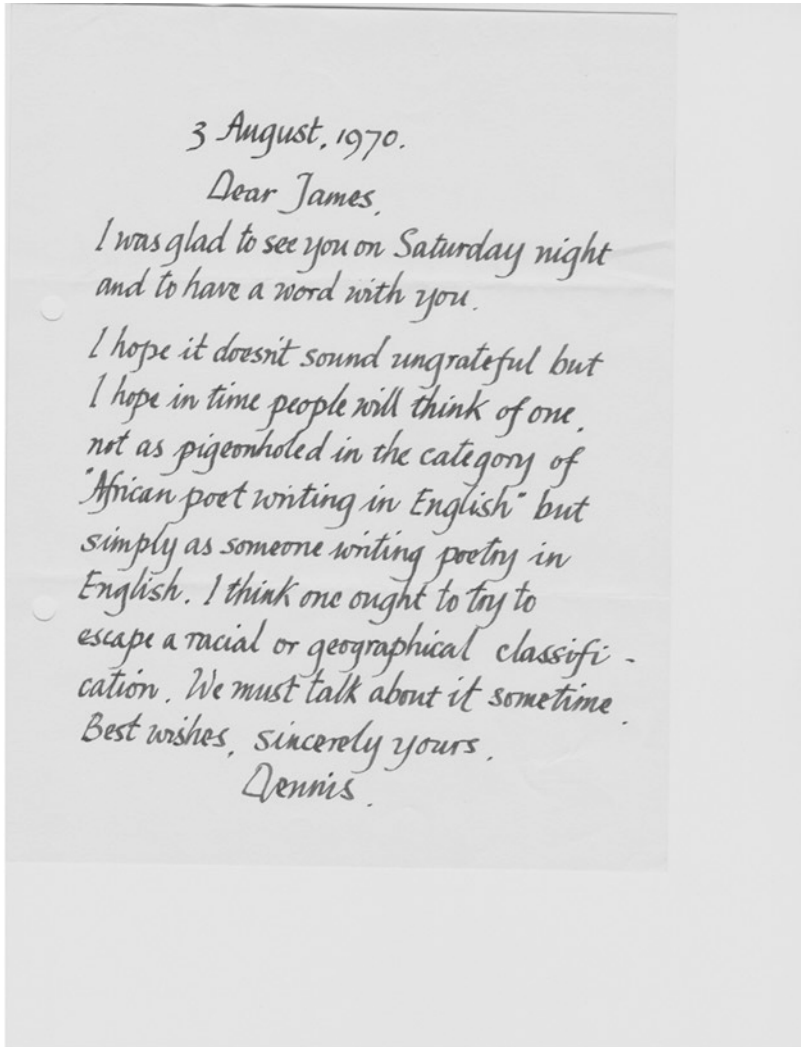 3 August, 1970.
Dear James,
I was glad to see you on Saturday night
and to have a word with you.
I hope it doesn't sound ungrateful but
I hope in time people will think of one,
not as pigeonholed in the category of
"African poet writing in English" but
simply as someone writing poetry in
English. I think one ought to try to
escape a racial or geographical classifi-
cation. We must talk about it sometime.
Best wishes, sincerely yours,
Dennis.